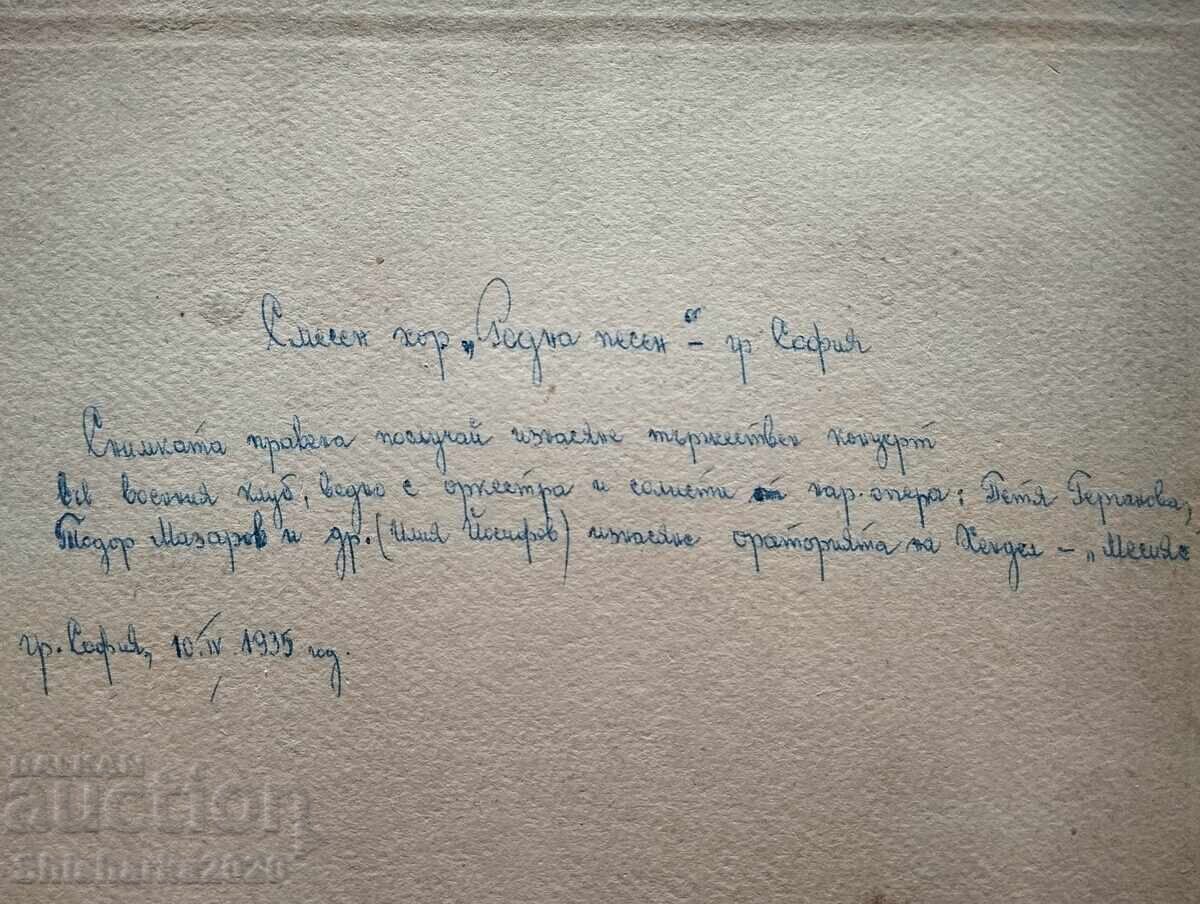 Смесен хор „Родна песен“ – гр София
Снимката правена послучай изнасяне тържествен концерт
във военния клуб, ведно с оркестра и солисти от нар. опера: Петя Герганова,
Тодор Мазаров и др. (Илия Йосифов) изнасяне ораторията на Хендел – „Месияс
гр. София, 10.IV.1935 год.
BALKAN
auction
Shisharka2020